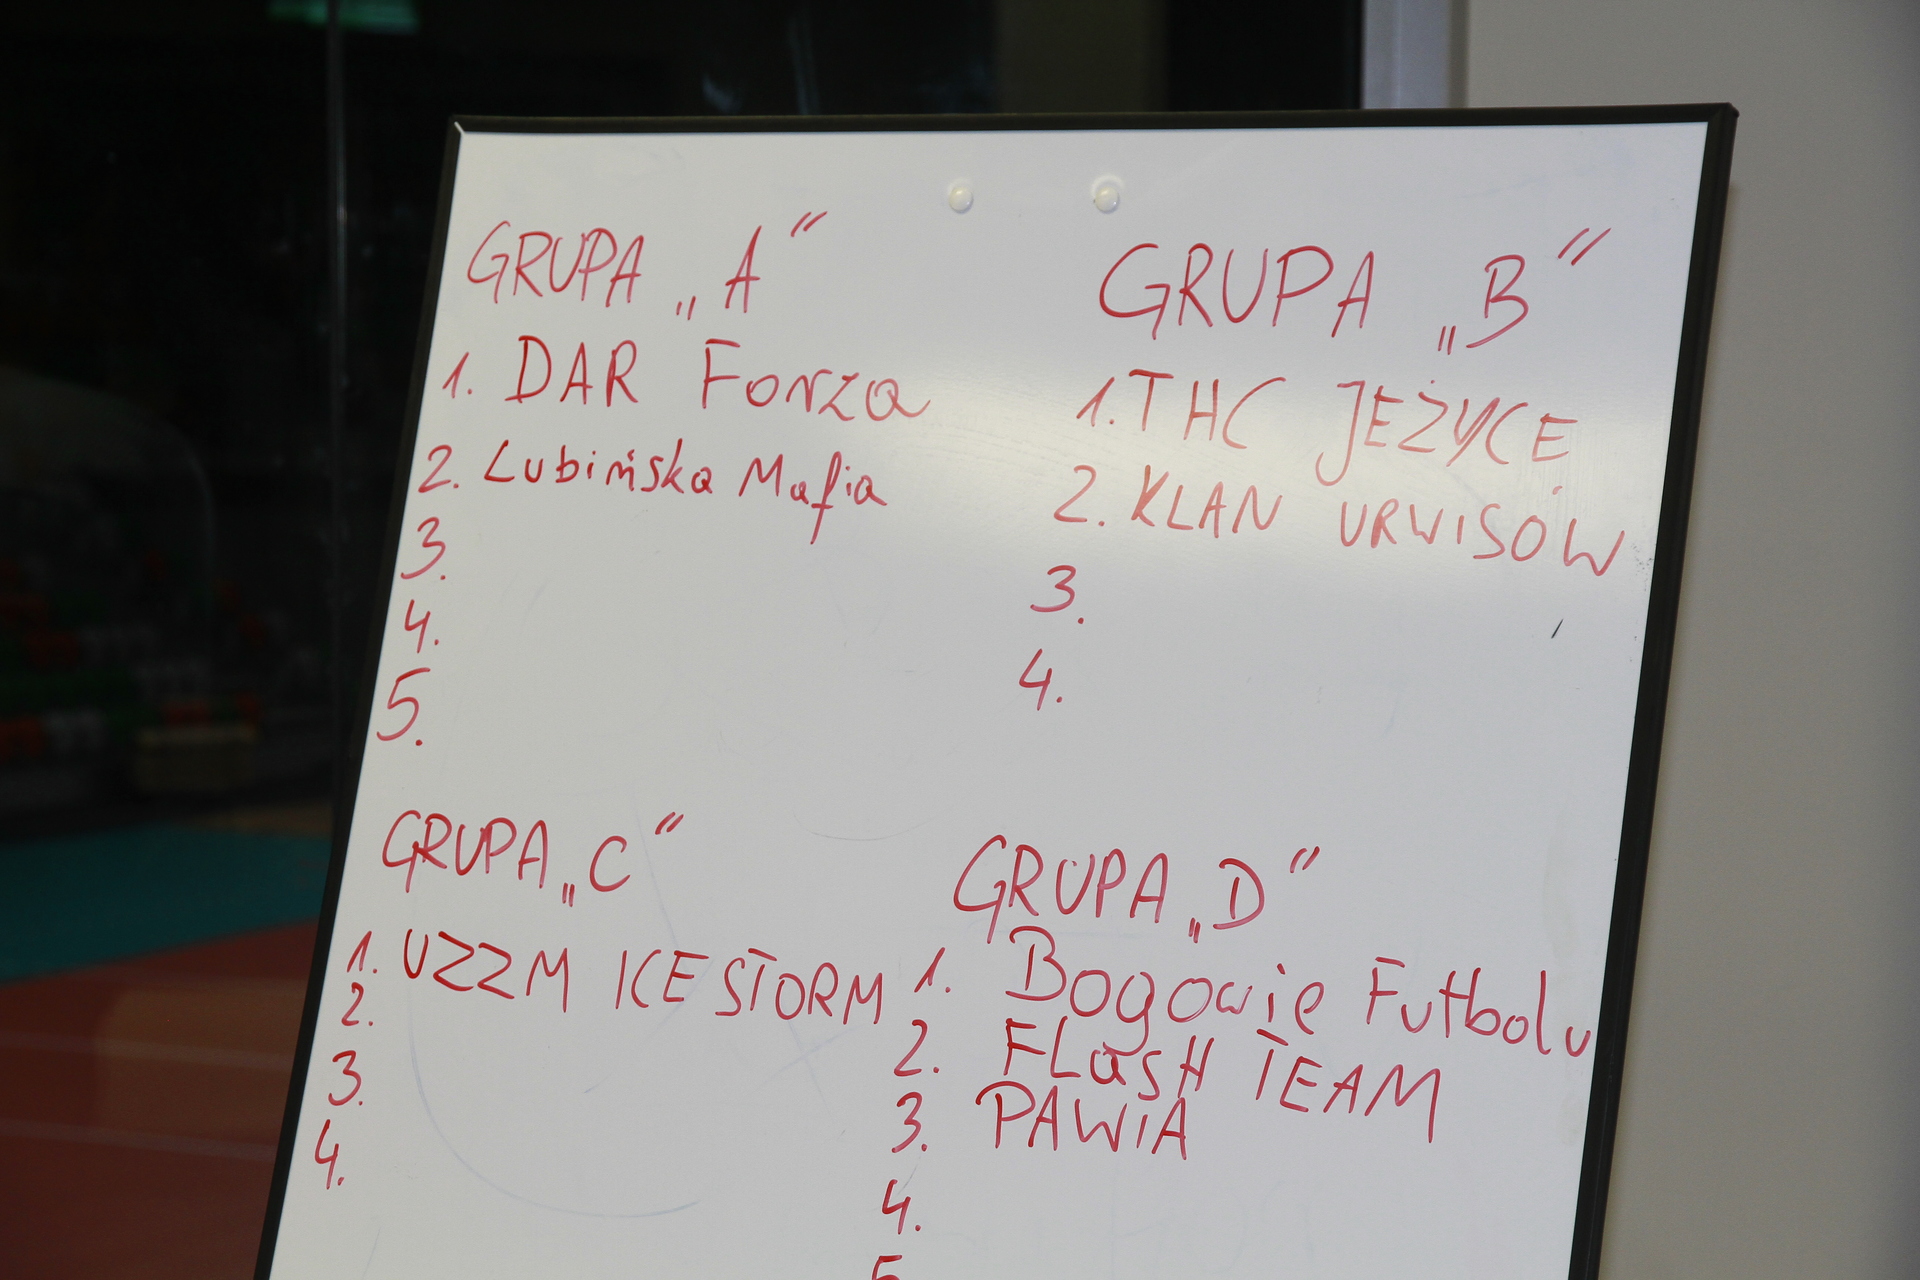 GRUPA „A”
1. DAR Forza
2. Lubińska Mafia
3.
4.
5.
GRUPA „B”
1. THC JEŻYCE
2. KLAN URWISÓW
3.
4.
GRUPA „C”
1. UZZM ICE STORM
2.
3.
4.
GRUPA „D”
1. Bogowie Futbolu
2. FLasH TEAM
3. PAWiA
4.
5